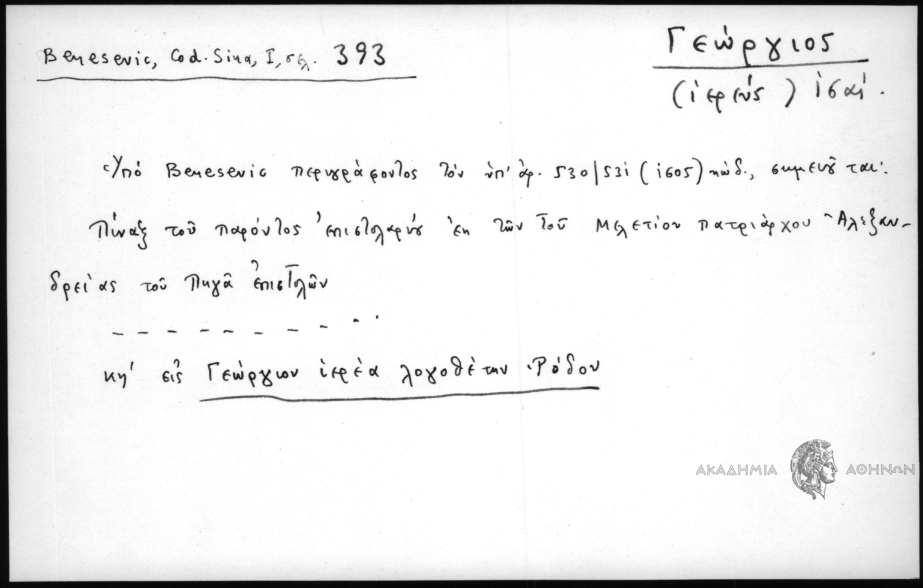 Benesevic, Cod. Sina, I, σελ. 393
Γεώργιος
(ἱερεύς) ις΄ αἰ.
Ὑπό Benesevic περιγράφοντος τόν ὑπ' ἀρ. 530/531 (1605) κώδ., σημειοῦται·
Πίναξ τοῦ παρόντος ἐπιστολαρίου ἐκ τῶν τοῦ Μελετίου πατριάρχου Ἀλεξαν-
δρείας τοῦ Πηγᾶ ἐπιστολῶν
κη' εἰς Γεώργιον ἱερέα λογοθέτην Ῥόδου
ΑΚΑΔΗΜΙΑ ΑΘΗΝΩΝ